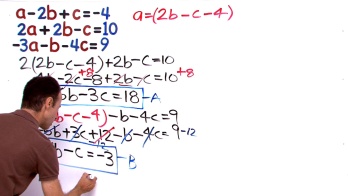 a-2b+c=-4 a=(2b-c-4)
2a+2b-c=10
-3a-b-4c=9
2(2b-c-4)+2b-c=10
4b-2c-8+2b-c=10
+8 +8
6b-3c=18 -A
b-c-4)-b-4c=9
6b+3c+12-b-4c=9-12
-12
b-c=-3 -B